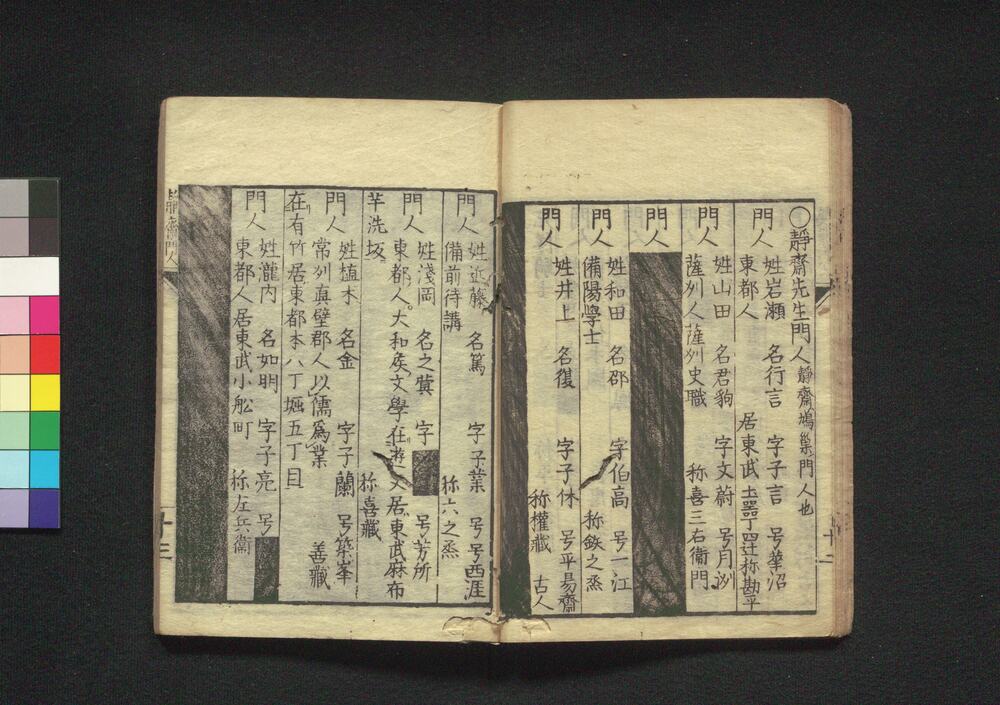 ○静齋先生門人静齋鳩巣門人也
門人　姓岩瀬　名行言　字子言　号華沼
東都人　居東武土器丁四辻称勘平
門人　姓山田　名君豹　字文蔚　号月㳌
薩列人薩州史職　称喜三右衛門
門人
門人　姓和田　名邵　字伯高　号一江
備陽學士　称鉄之烝
門人　姓井上　名復　字子休　号平易齋
称權藏　古人
十二
門人　姓近藤　名篤　字子業　号号西涯
備前待講　称六之烝
門人　姓淺岡　名之冀　字　号芳所
東都人大和侯文學在遊文居東武麻布
芋洗坂　称喜藏
門人　姓植木　名金　字子蘭　号築峯
常列真壁郡人以儒爲業　善藏
在有竹居東都本八丁堀五丁目
門人　姓瀧内　名如明　字子亮　号
東都人居東武小舩町　称左兵衛
齋門人
十三